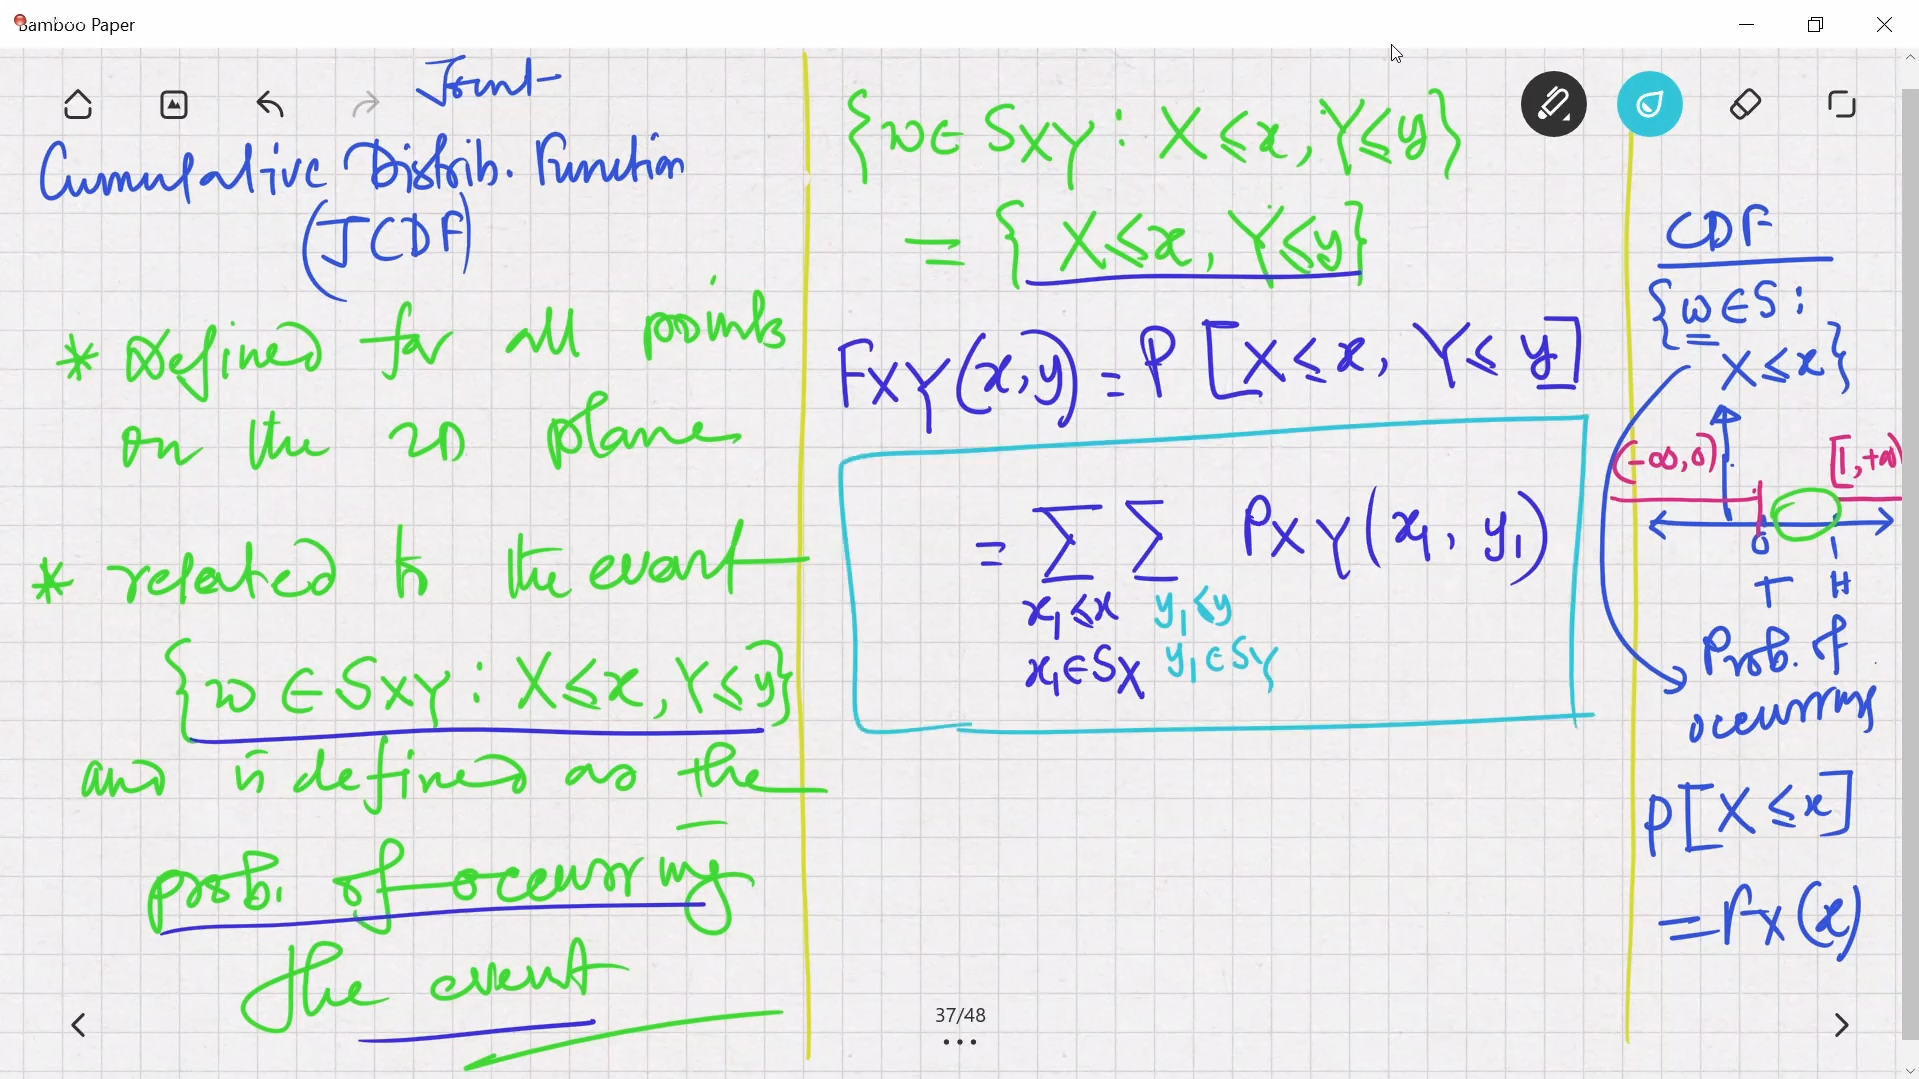 Bamboo Paper
Joint
Cumulative Distrib. Function
(JCDF)
* Defined for all points
on the 2D plane
* related to the event
{w ∈ SXY : X ≤ x, Y ≤ y}
and is defined as the
prob. of occurring
the event
{w ∈ SXY : X ≤ x, Y ≤ y}
= { X ≤ x, Y ≤ y}
FXY(x, y) = P [X ≤ x, Y ≤ y]
= Σ Σ PXY(x1, y1)
x1 ≤ x y1 ≤ y
x1 ∈ SX y1 ∈ SY
CDF
{w ∈ S :
X ≤ x}
(-∞, 0) [1, +∞)
0 1
T H
Prob. of
occurring
P[X ≤ x]
= FX(x)
37/48